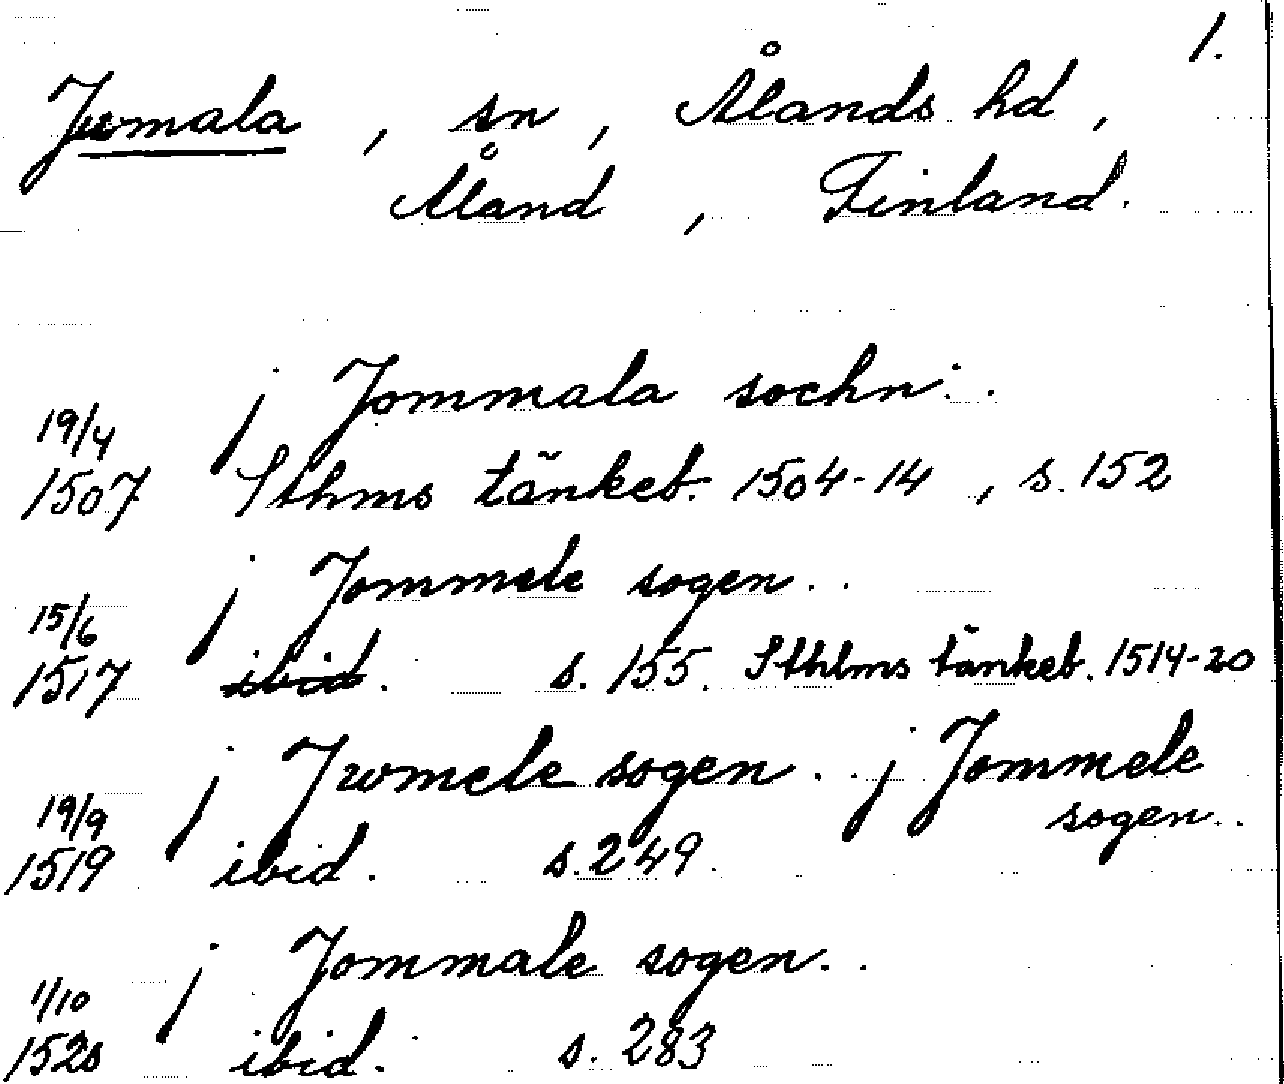 1.
Jomala, sn, Ålands hd,
Åland, Finland.
j Jommala sochn..
19/4
1507 Sthms tänkeb. 1504-14, s. 152
j Jommele sogen..
15/6
1517 ibid. s. 155. Sthlms tänkeb. 1514-20
j Jwmele sogen.. j Jommele
sogen..
19/9
1519 ibid. s. 249.
j Jommale sogen..
1/10
1520 ibid. s. 283